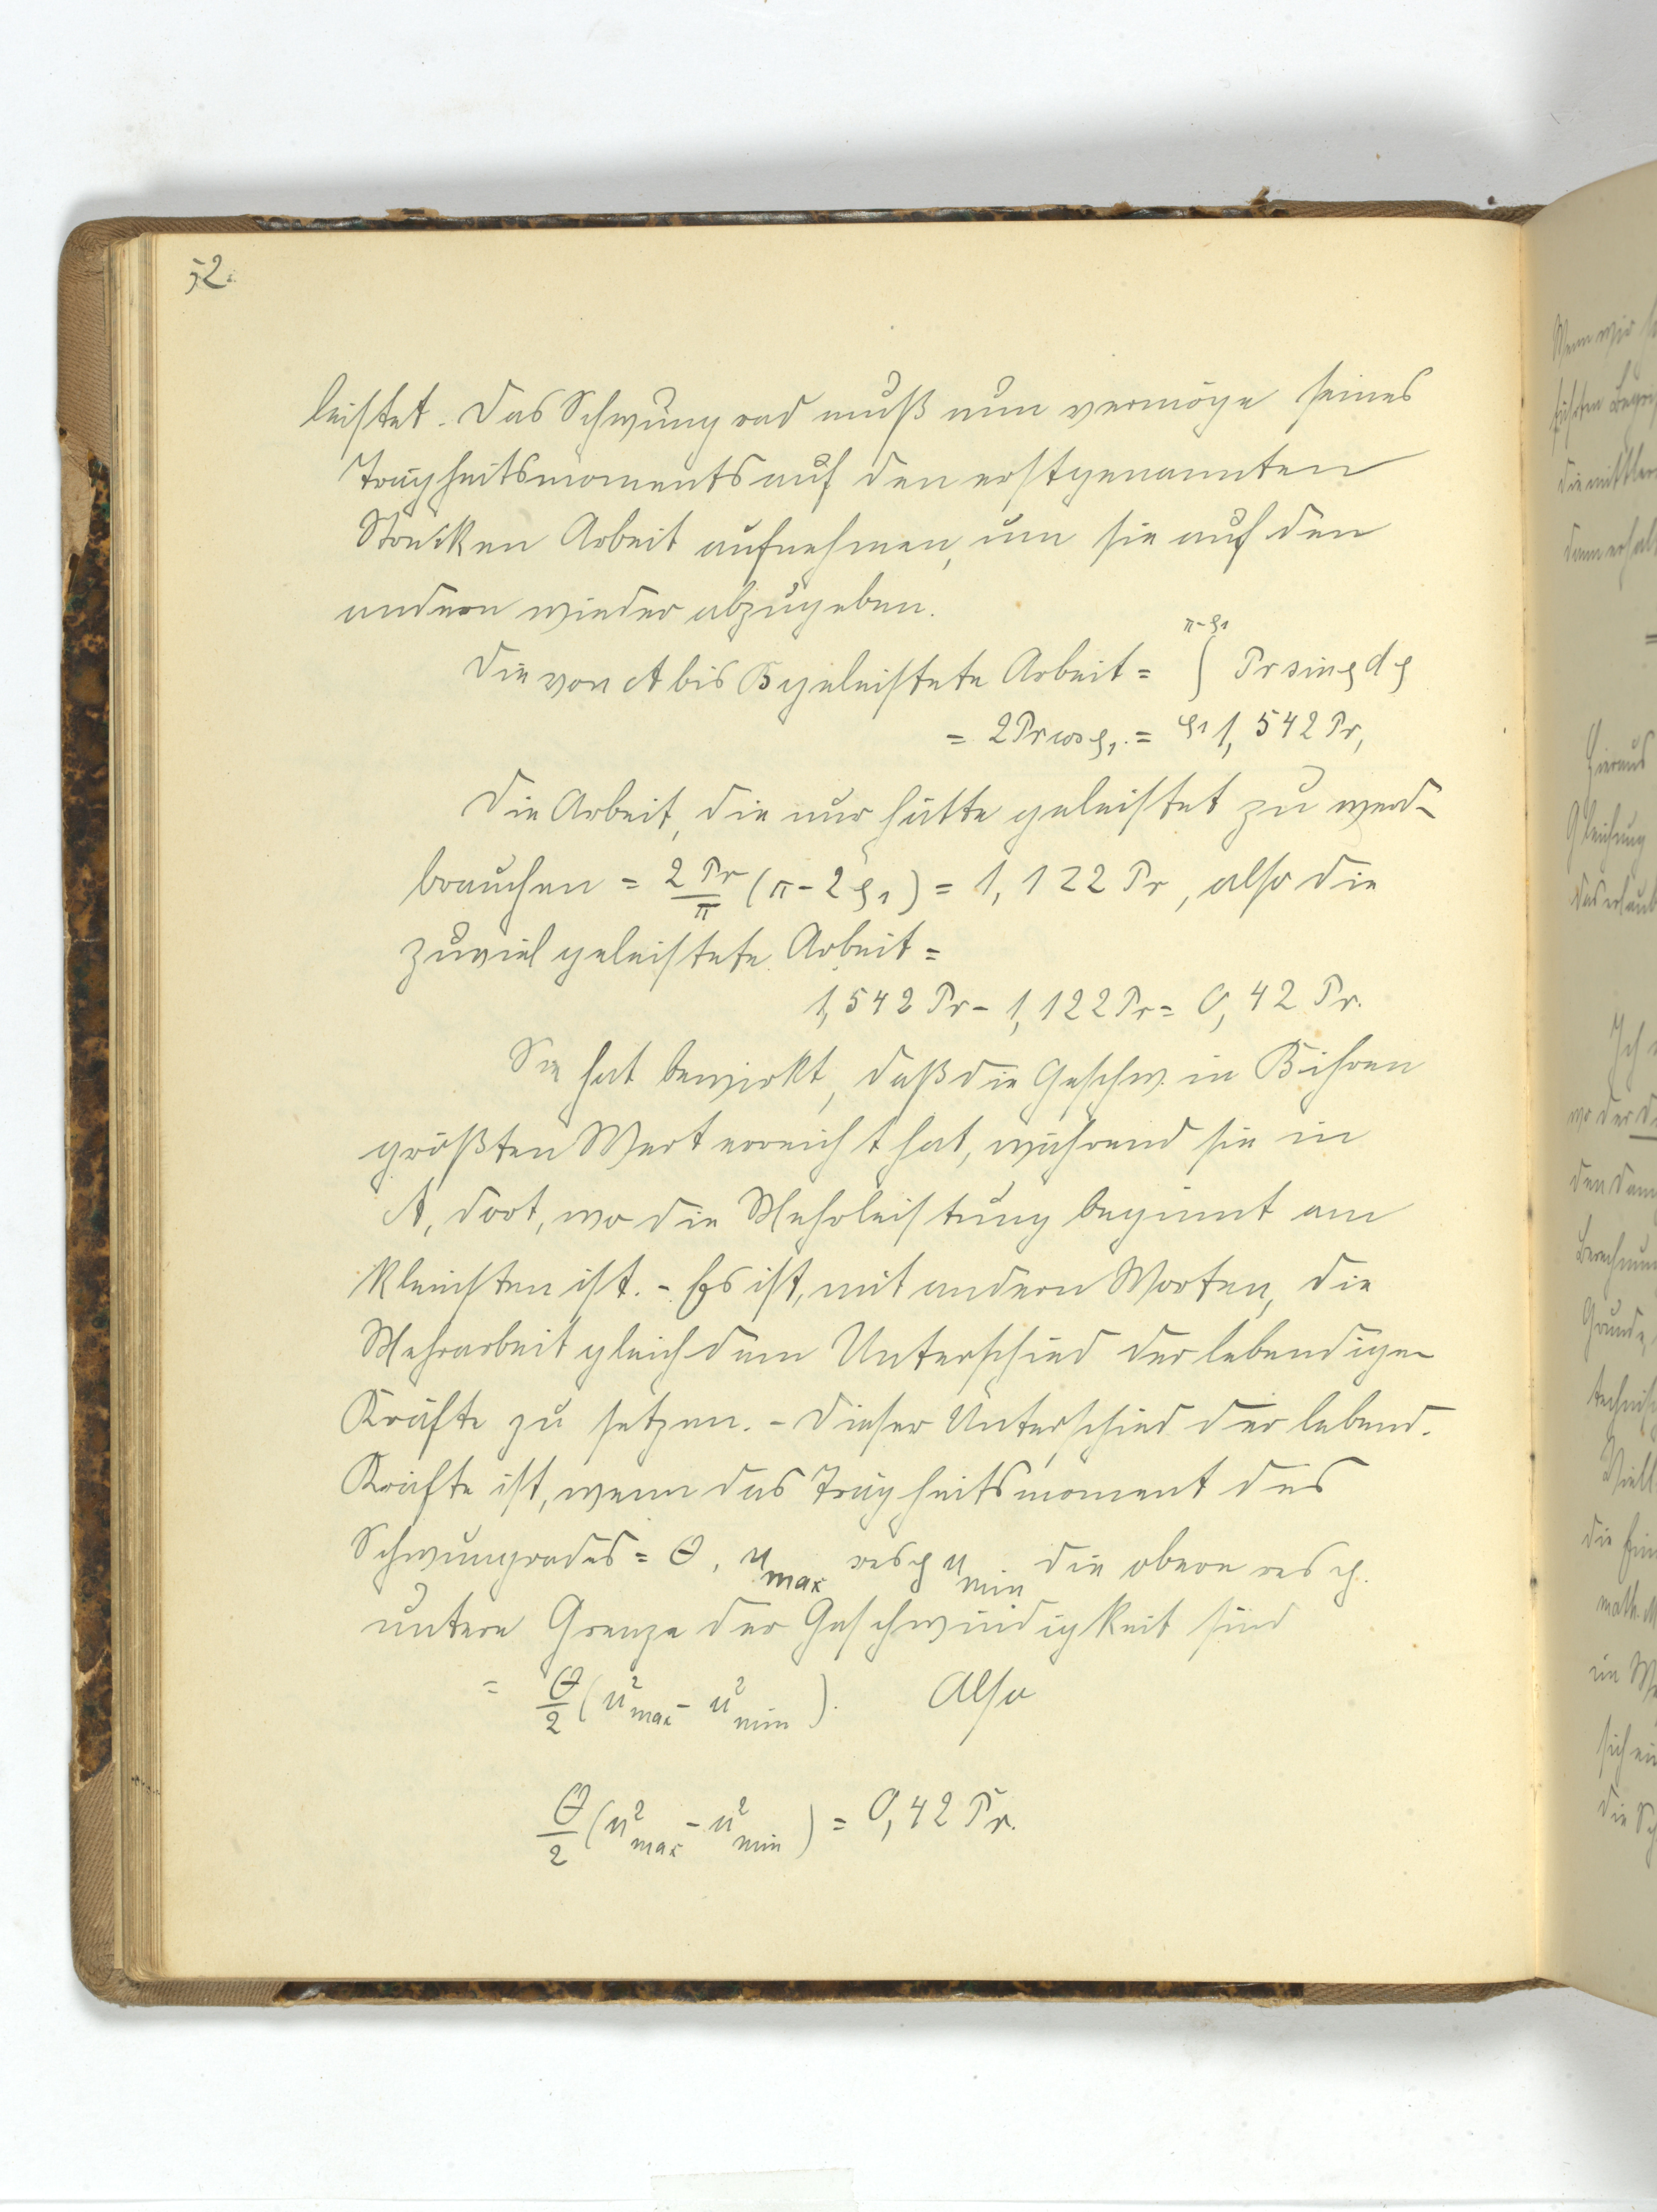 52.
leistet. Das Schwungrad muß nun vermöge seines
Trägheitsmoments auf den erstgenannten
Strecken Arbeit aufnehmen, um sie auf den
andern wieder abzugeben.
Die von A bis B geleistete Arbeit = ∫_{φ₁}^{π-φ₁} Pr sin φ dφ
= 2Pr cos φ₁. = 1,542 Pr,
Die Arbeit, die nur hätte geleistet zu werd-
brauchen = 2Pr/π (π - 2φ₁) = 1,122 Pr, also die
zuviel geleistete Arbeit =
1,542 Pr - 1,122 Pr = 0,42 Pr.
Sie hat bewirkt, daß die Geschw. in B ihren
größten Wert erreicht hat, während sie in
A, dort, wo die Mehrleistung beginnt am
kleinsten ist. - Es ist, mit andern Worten, die
Mehrarbeit gleich dem Unterschied der lebendigen
Kräfte zu setzen. - Dieser Unterschied der lebend.
Kräfte ist, wenn das Trägheitsmoment des
Schwungrades = Θ, u_max resp u_min die obere resp.
untere Grenze der Geschwindigkeit sind
= Θ/2 (u²_max - u²_min). Also
Θ/2 (u²_max - u²_min) = 0,42 Pr.
Wenn wir
führten
dann
Hieraus
Gleichung
das erlaubt
Ich
wo der
den
Berechnung
Grunde,
technisch
die
math.
ein
sich
die